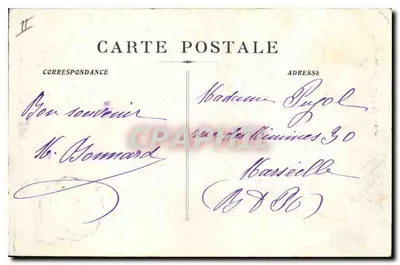 II
CARTE POSTALE
CORRESPONDANCE
ADRESSE
Bon souvenir
M. Bonnard
Madame Pujol
rue des Minimes 30
Marseille
(B D R)
CPARAMA